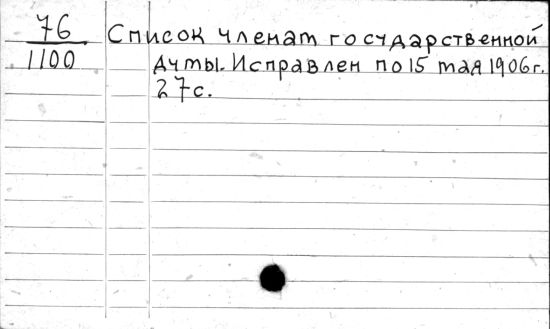 76
1100
Список членам государственной
думы. Исправлен по 15 мая 1906 г.
27 с.